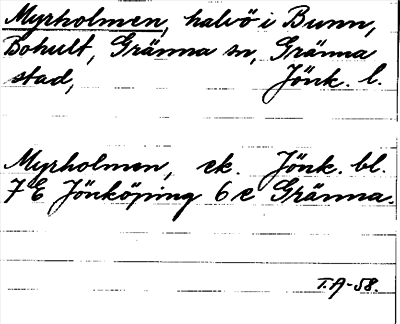 Myrholmen, halvö i Bunn,
Bohult, Gränna sn, Gränna
stad, Jönk. l.
Myrholmen, ek. Jönk. bl.
7 E Jönköping 6 e Gränna.
T.A-58.